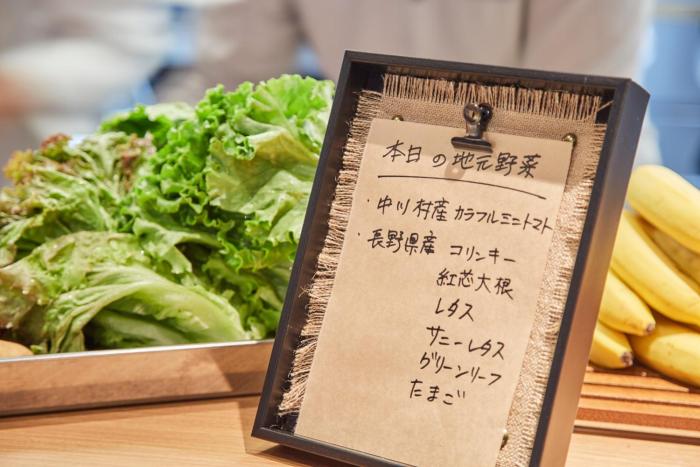 本日の地元野菜
・中川村産 カラフルミニトマト
・長野県産 コリンキー
紅芯大根
レタス
サニーレタス
グリーンリーフ
たまご